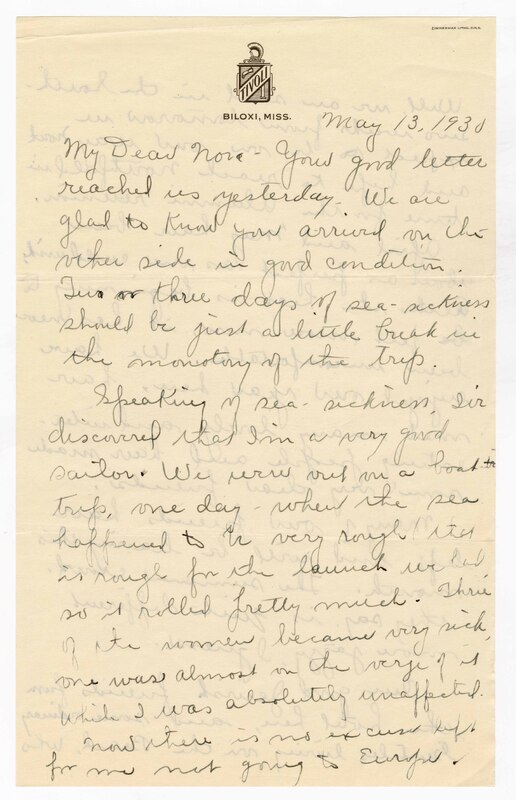 TIVOLI
BILOXI, MISS.
May 13, 1930
My Dear Nora - Your good letter
reached us yesterday. We are
glad to know you arrived on the
other side in good condition.
Two or three days of sea-sickness
should be just a little break in
the monotony of the trip.
Speaking of sea-sickness, I've
discovered that I'm a very good
sailor. We were out on a boat
trip, one day - when the sea
happened to be very rough (that
is rough for the launch we had
so it rolled pretty much. Three
of the women became very sick,
one was almost on the verge of it
while I was absolutely unaffected.
Now there is no excuse left
for me not going to Europe.